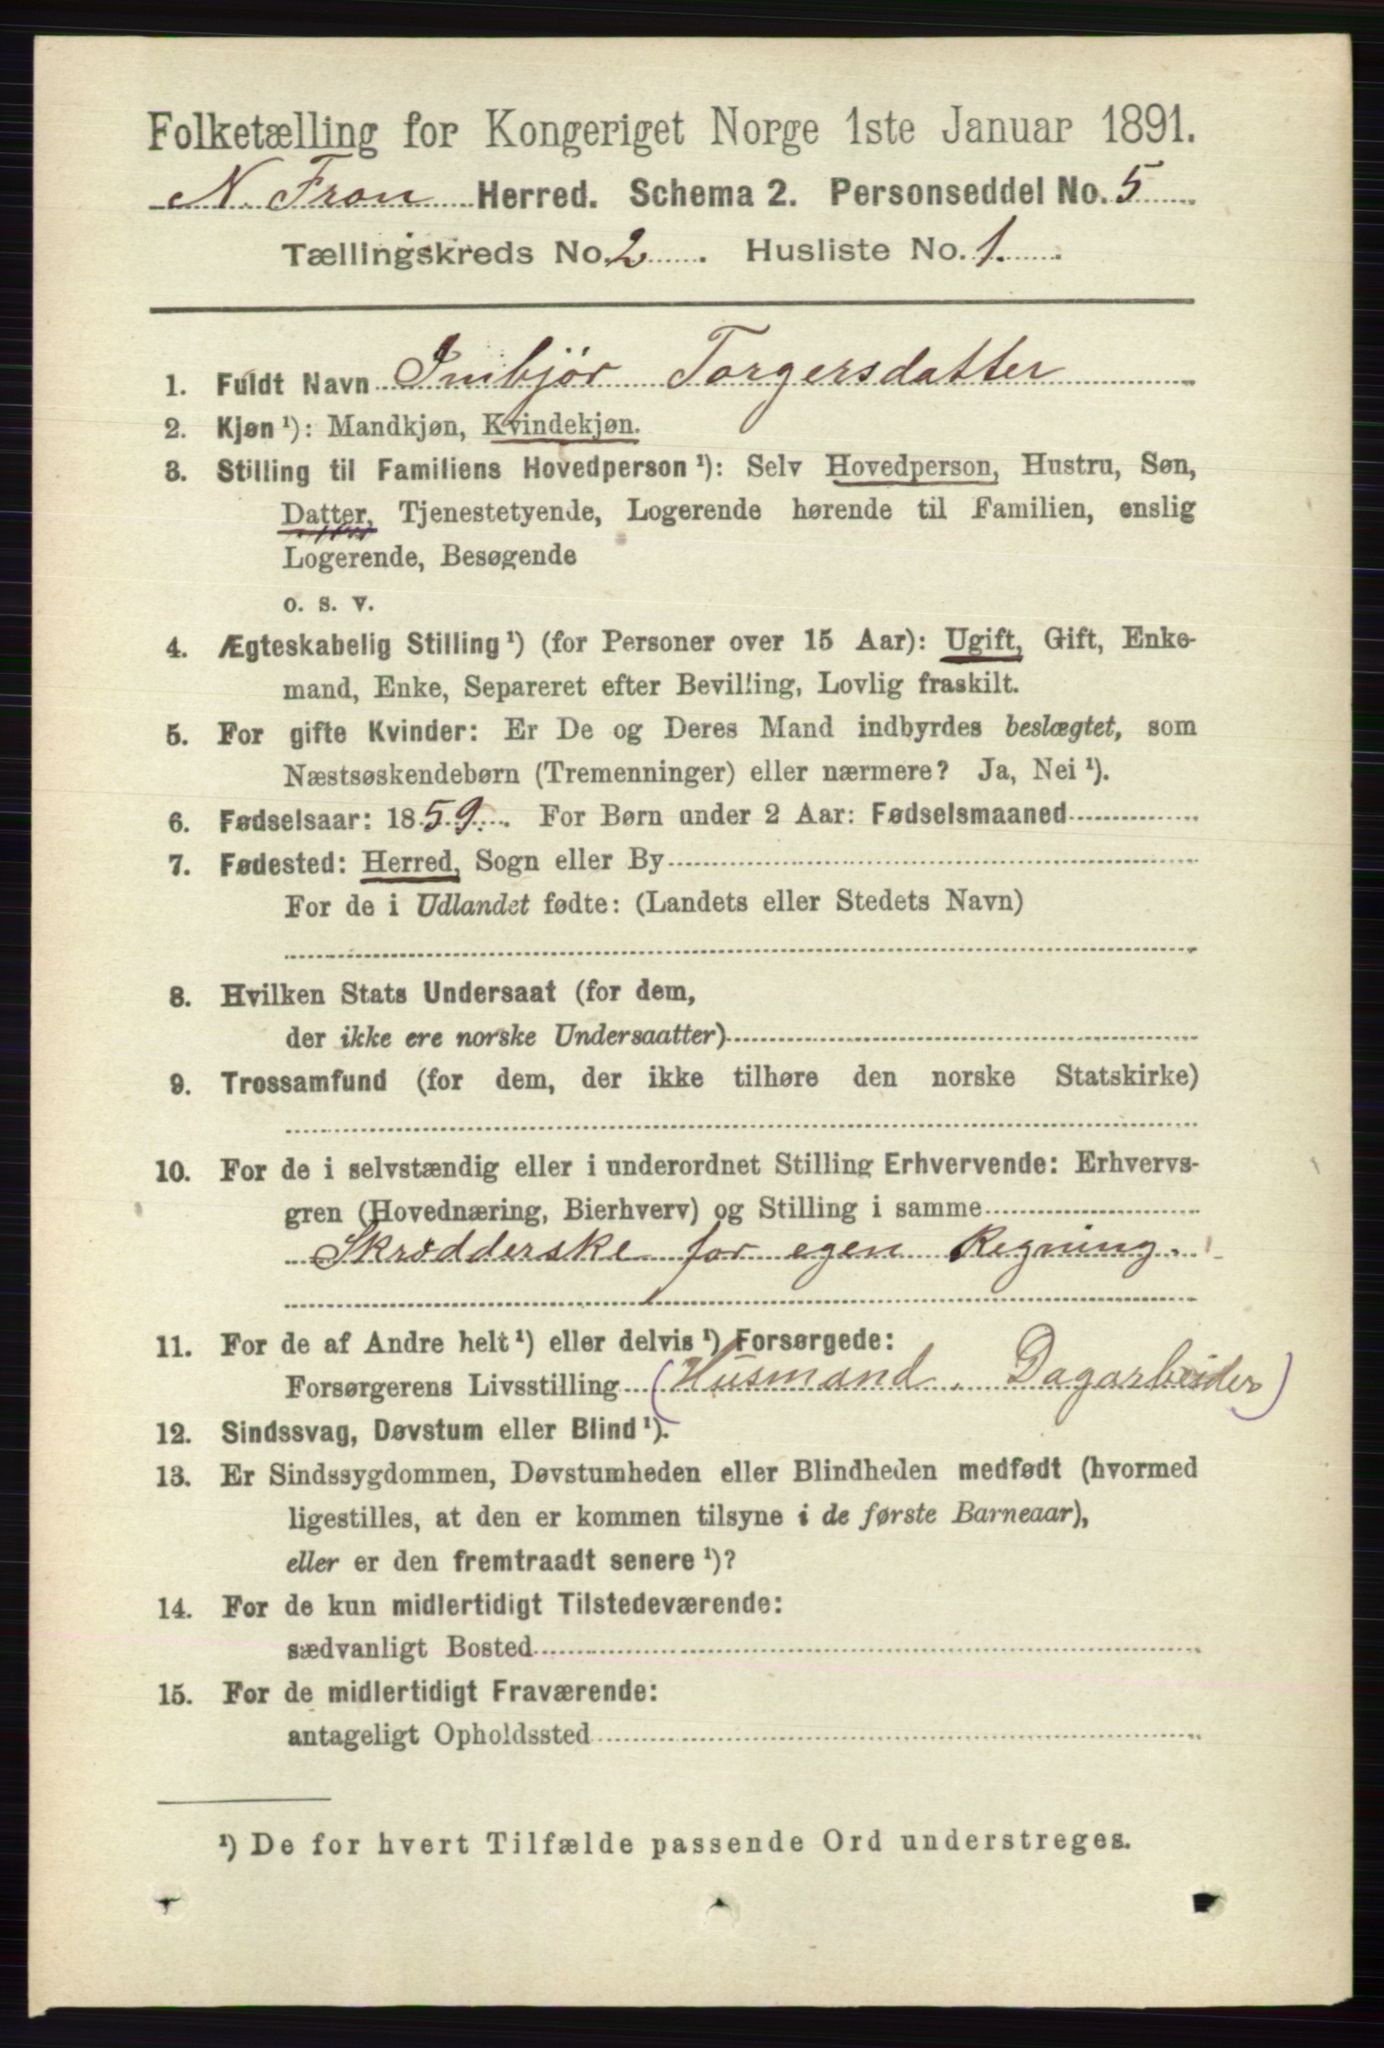 Folketælling for Kongeriget Norge 1ste Januar 1891.
N. Fron Herred. Schema 2. Personseddel No. 5
Tællingskreds No. 2. Husliste No. 1.
1. Fuldt Navn Imbjør Torgersdatter
2. Kjøn ¹): Mandkjøn, Kvindekjøn.
3. Stilling til Familiens Hovedperson ¹): Selv Hovedperson, Hustru, Søn,
Datter, Tjenestetyende, Logerende hørende til Familien, enslig
Logerende, Besøgende
o. s. v.
4. Ægteskabelig Stilling ¹) (for Personer over 15 Aar): Ugift, Gift, Enke-
mand, Enke, Separeret efter Bevilling, Lovlig fraskilt.
5. For gifte Kvinder: Er De og Deres Mand indbyrdes beslægtet, som
Næstsøskendebørn (Tremenninger) eller nærmere? Ja, Nei ¹).
6. Fødselsaar: 1859. For Børn under 2 Aar: Fødselsmaaned
7. Fødested: Herred, Sogn eller By
For de i Udlandet fødte: (Landets eller Stedets Navn)
8. Hvilken Stats Undersaat (for dem,
der ikke ere norske Undersaatter)
9. Trossamfund (for dem, der ikke tilhøre den norske Statskirke)
10. For de i selvstændig eller i underordnet Stilling Erhvervende: Erhvervs-
gren (Hovednæring, Bierhverv) og Stilling i samme
Skrødderske for egen Regning.
11. For de af Andre helt ¹) eller delvis ¹) Forsørgede:
Forsørgerens Livsstilling (Husmand, Dagarbeider)
12. Sindssvag, Døvstum eller Blind ¹).
13. Er Sindssygdommen, Døvstumheden eller Blindheden medfødt (hvormed
ligestilles, at den er kommen tilsyne i de første Barneaar),
eller er den fremtraadt senere ¹)?
14. For de kun midlertidigt Tilstedeværende:
sædvanligt Bosted
15. For de midlertidigt Fraværende:
antageligt Opholdssted
¹) De for hvert Tilfælde passende Ord understreges.